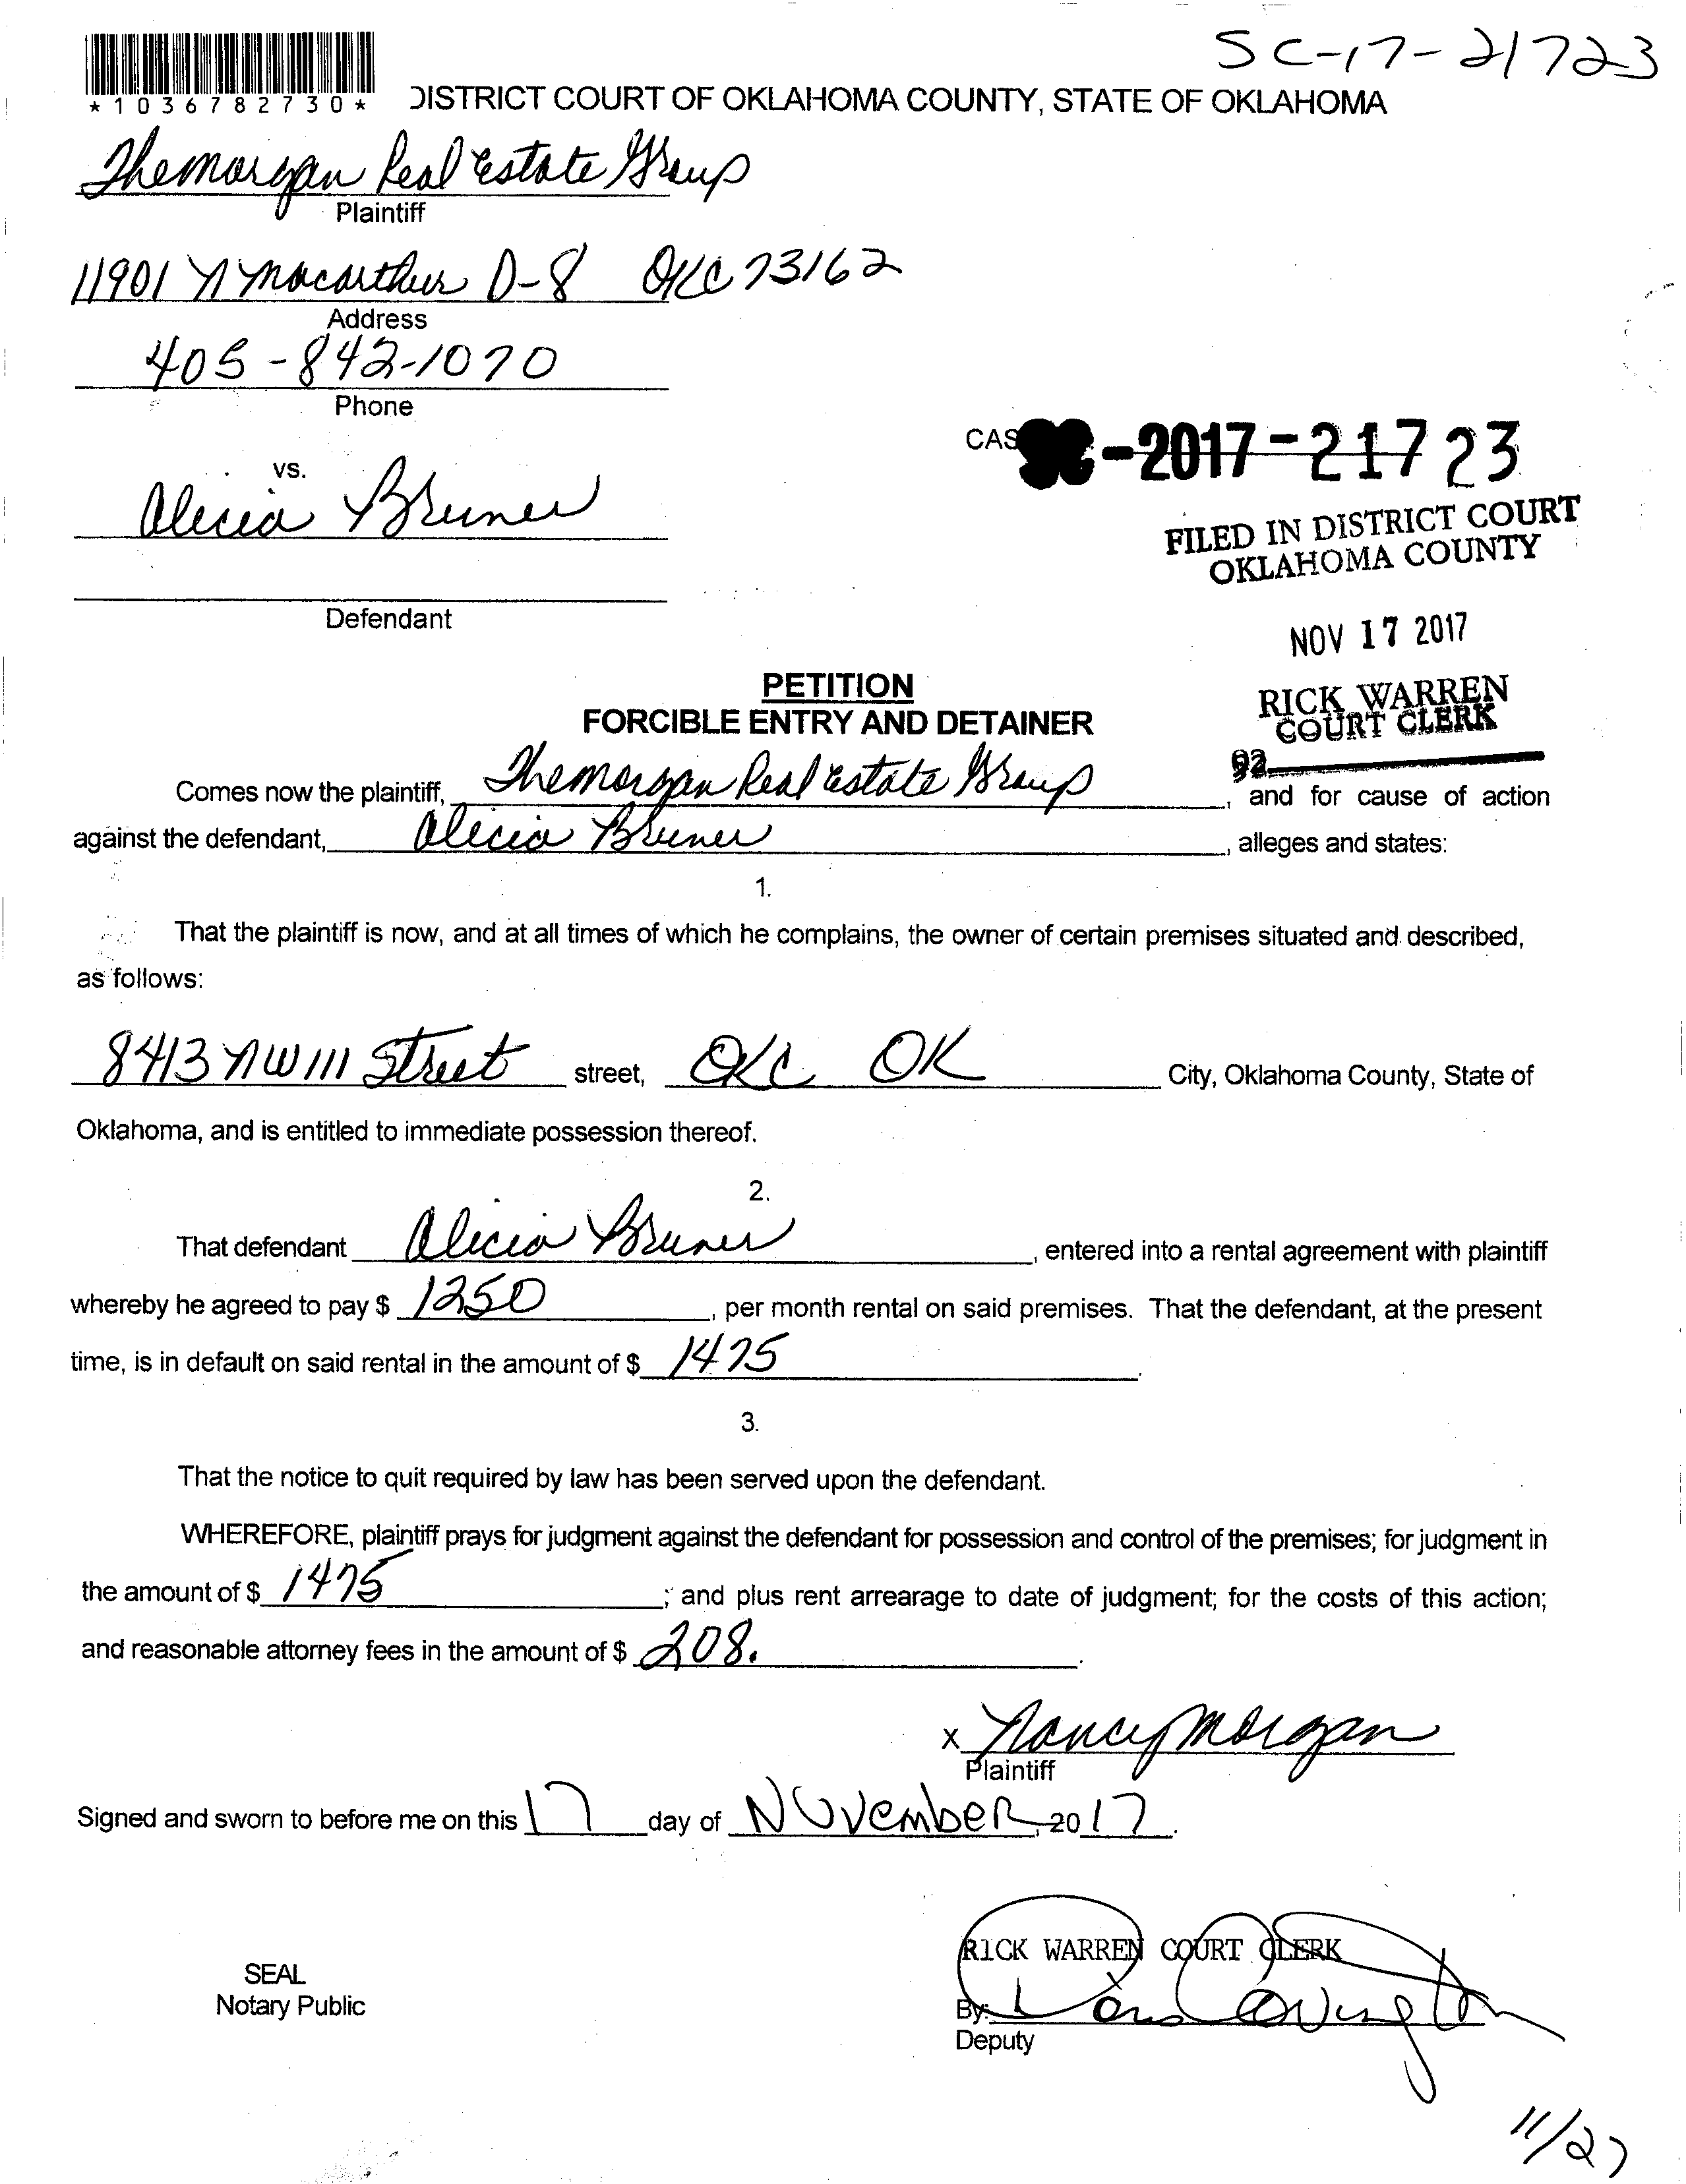 SC-17-21723
*1036782730*
DISTRICT COURT OF OKLAHOMA COUNTY, STATE OF OKLAHOMA
The Morgan Real Estate Group
Plaintiff
11901 N Macarthur D-8 OKC 73162
Address
405-842-1070
Phone
CAS -2017-21723
vs.
Alicia Bruner
FILED IN DISTRICT COURT
OKLAHOMA COUNTY
Defendant
NOV 17 2017
PETITION
FORCIBLE ENTRY AND DETAINER
RICK WARREN
COURT CLERK
92
Comes now the plaintiff, The Morgan Real Estate Group, and for cause of action
against the defendant, Alicia Bruner, alleges and states:
1.
That the plaintiff is now, and at all times of which he complains, the owner of certain premises situated and described,
as follows:
8413 NW 111 Street street, OKC OK City, Oklahoma County, State of
Oklahoma, and is entitled to immediate possession thereof.
2.
That defendant Alicia Bruner, entered into a rental agreement with plaintiff
whereby he agreed to pay $ 1250, per month rental on said premises. That the defendant, at the present
time, is in default on said rental in the amount of $ 1475.
3.
That the notice to quit required by law has been served upon the defendant.
WHEREFORE, plaintiff prays for judgment against the defendant for possession and control of the premises; for judgment in
the amount of $ 1475; and plus rent arrearage to date of judgment; for the costs of this action;
and reasonable attorney fees in the amount of $ 208.
X Nancy Morgan
Plaintiff
Signed and sworn to before me on this 17 day of November, 2017.
RICK WARREN COURT CLERK
SEAL
Notary Public
By: Covington
Deputy
11/27